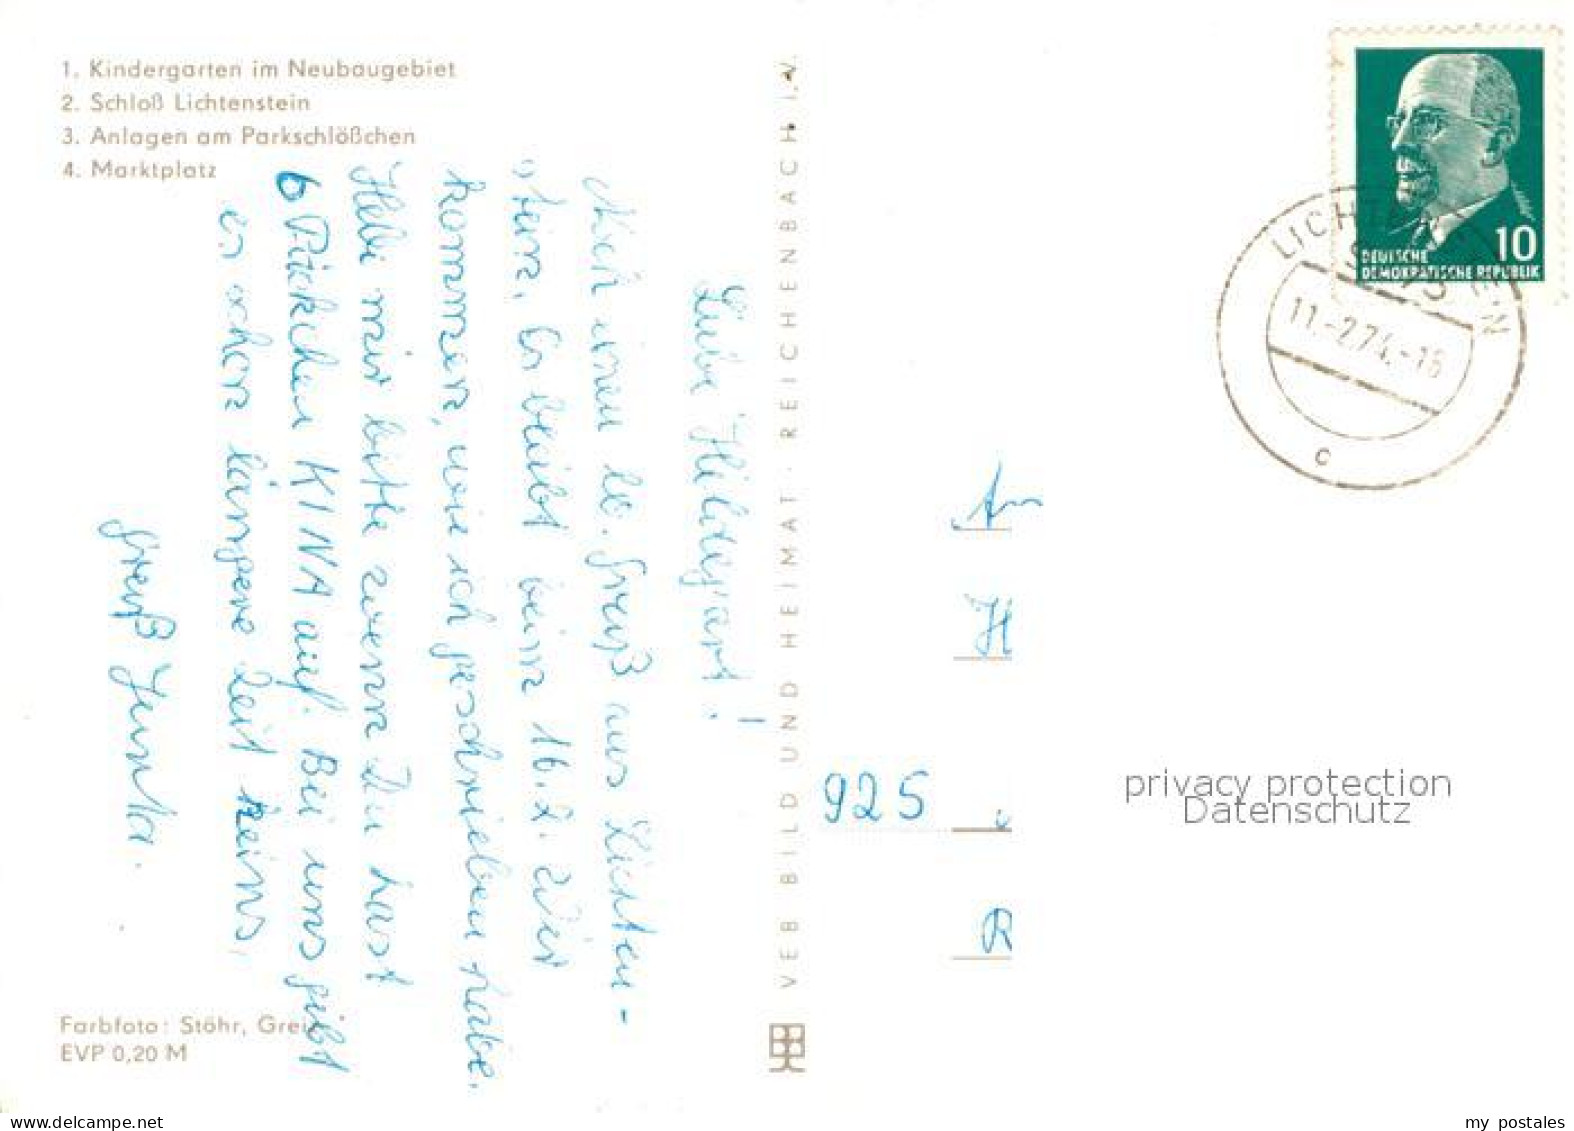 1. Kindergarten im Neubaugebiet
2. Schloß Lichtenstein
3. Anlagen am Parkschlößchen
4. Marktplatz
Liebe Hildegart!
Noch einen lb. Gruß aus Lichten-
stein. Es bleibt beim 16.2. Wir
kommen, wie ich geschrieben habe.
Hebe mir bitte wenn Du hast
6 Päckchen KINA auf. Bei uns gibt
es schon längere Zeit keins.
Gruß Jutta.
Farbfoto: Stöhr, Greiz
EVP 0,20 M
VEB BILD UND HEIMAT · REICHENBACH i. V.
DEUTSCHE
DEMOKRATISCHE REPUBLIK
10
11.-2.74.-18
c
An
H
925
R
privacy protection
Datenschutz
www.delcampe.net
my_postales